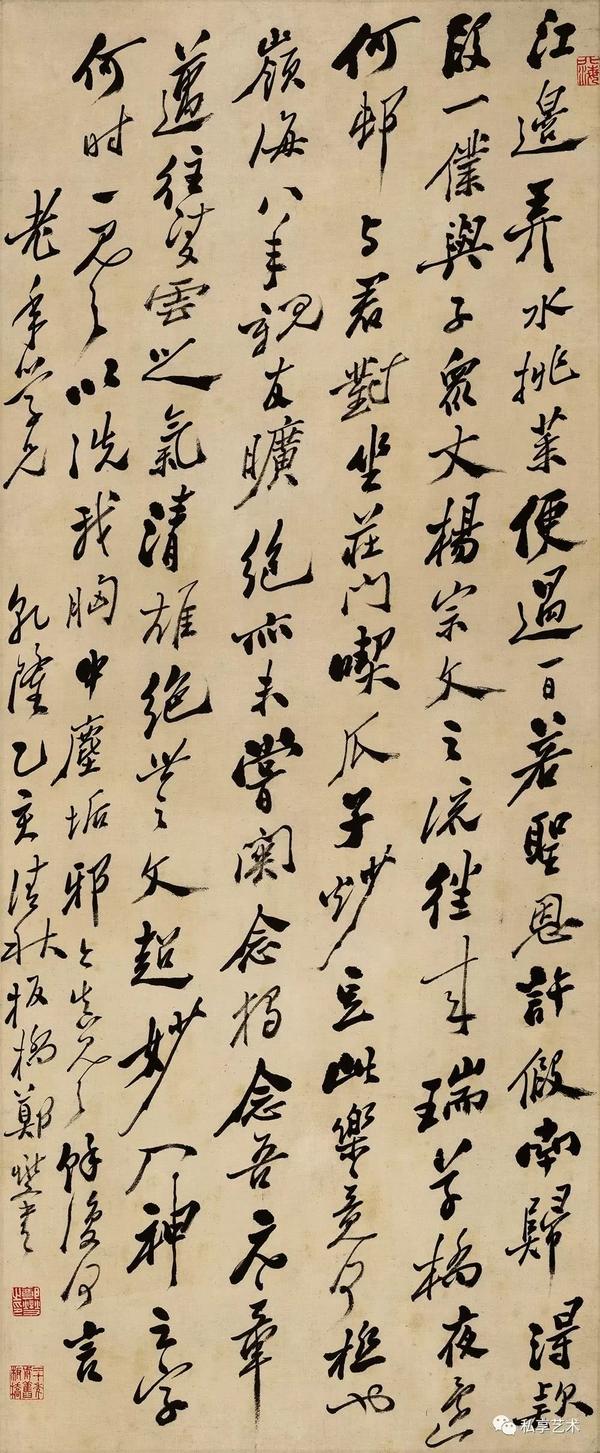 江邊弄水挑菜便過一日若聖恩許假南歸得款
段一僕與子眾丈楊宗文之流往來瑞草橋夜還
何村与君對坐莊門喫瓜子炒豆此樂竟何極也
嶺海八年親友曠絕亦未嘗關念獨念吾元章
邁往凌雲之氣清雄絕世之文超妙入神之字
何时一見之以洗我胸中塵垢邪今真見之餘復何言
老年學兄 乾隆乙亥清秋板橋鄭燮書
私享艺术